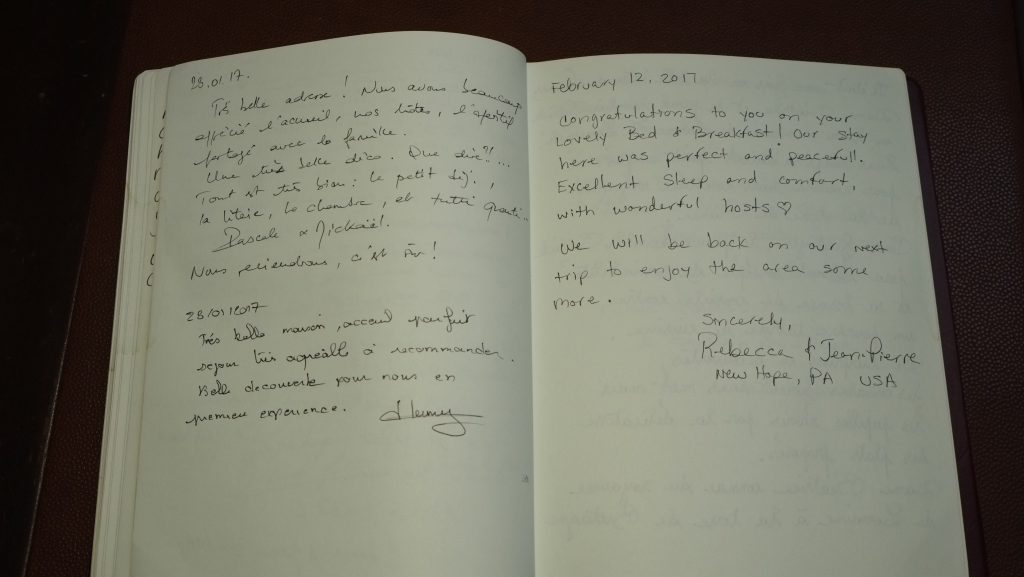 28.01.17.
Très belle adresse ! Nous avons beaucoup
apprécié l'accueil, nos hôtes, l'apéritif
partagé avec la famille.
Une très belle déco. Que dire ?!...
Tout est très bien : le petit déj.,
la literie, la chambre, et tutti quanti...
Pascale & Mickaël.
Nous reviendrons, c'est sûr !
28/01/2017
Très belle maison, accueil parfait
sejour très agréable à recommander.
Belle decouverte pour nous en
premiere experience.
February 12, 2017
Congratulations to you on your
Lovely Bed & Breakfast! Our stay
here was perfect and peacefull.
Excellent Sleep and comfort,
with wonderful hosts ♡
We will be back on our next
trip to enjoy the area some
more.
Sincerely,
Rebecca & Jean-Pierre
New Hope, PA USA